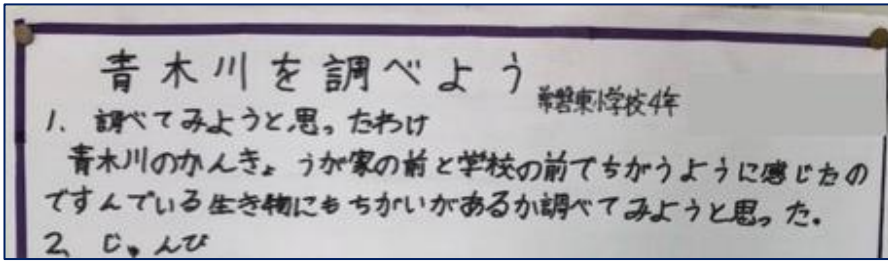 青木川を調べよう
常磐東小学校4年
1、調べてみようと思ったわけ
青木川のかんきょうが家の前と学校の前でちがうように感じたの
ですんでいる生き物にもちがいがあるか調べてみようと思った。
2、じゅんび